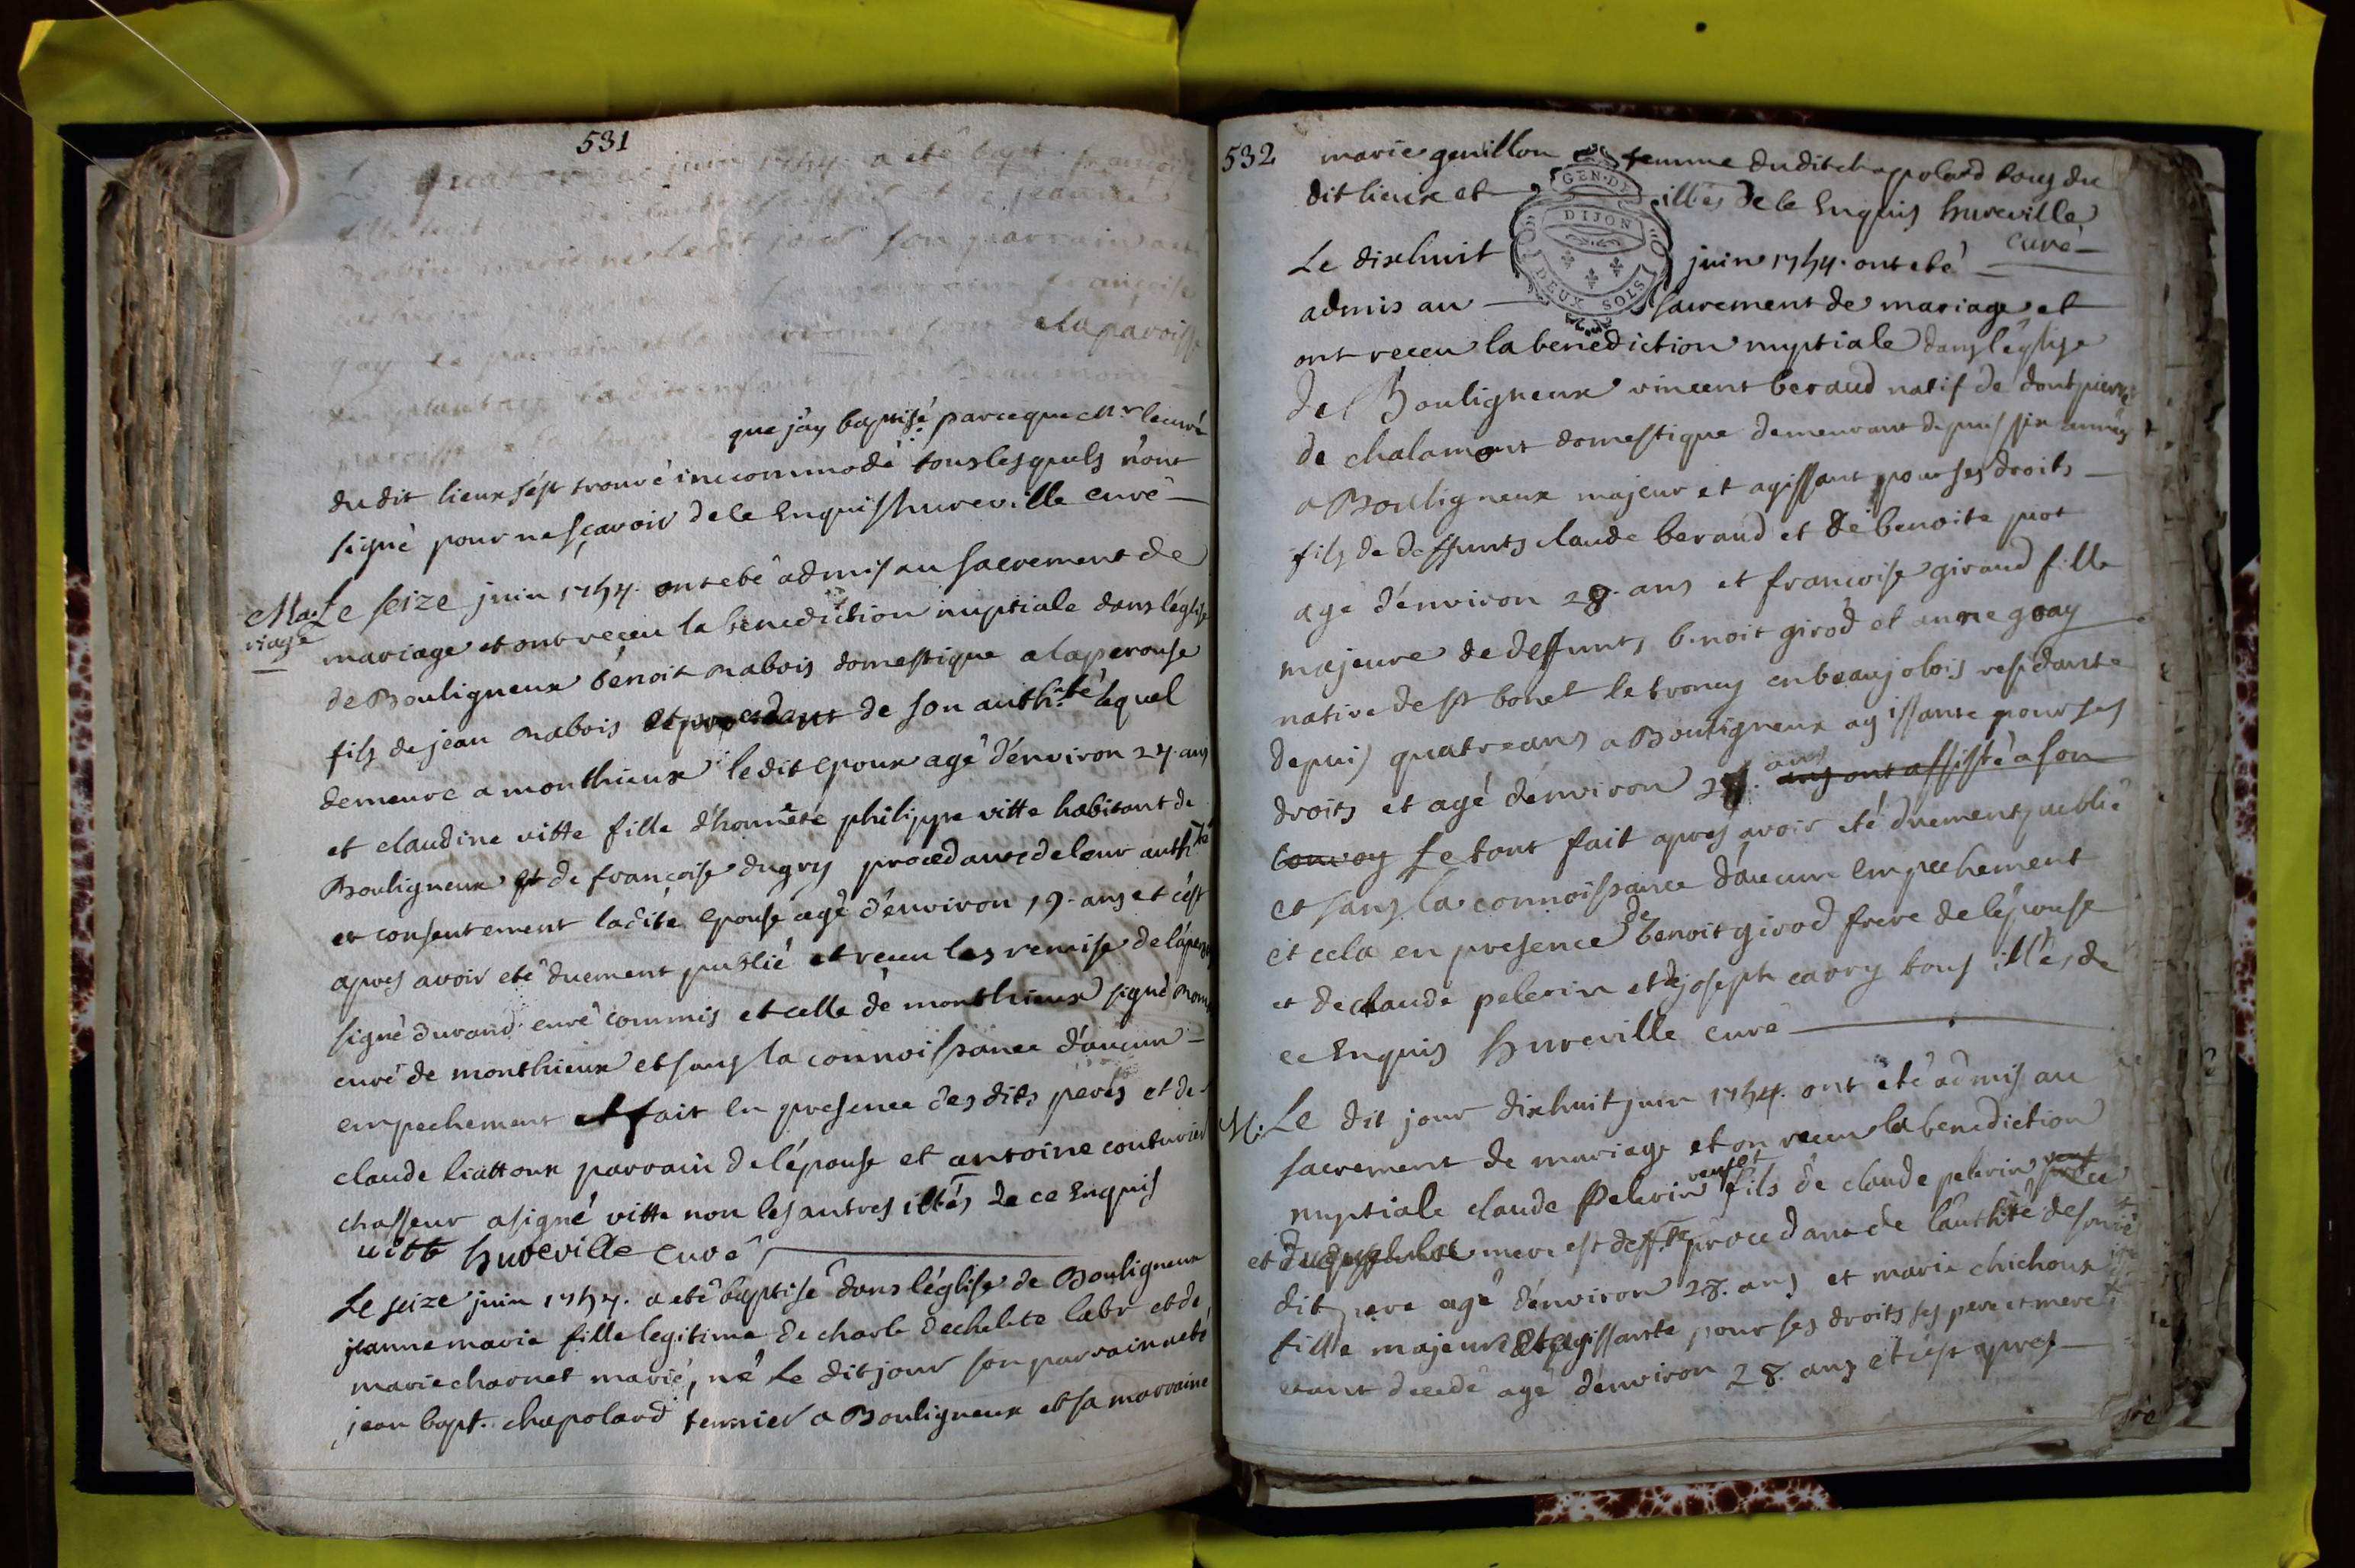 531
juin 1754 a eté bapt françoise
jeanne
nabis marie ledit jour son parrain a eté
françoise
gay le parrain et la de la paroisse
que j'ay baptisé parceque Mr le curé
du dit lieux s'est trouvé incommodé tous lesquels n'ont
signé pour ne sçavoir de ce Enquis hureville curé
Mariage
Le seize juin 1754. ont eté admis au sacrement de
mariage et ont reçeu la benediction nuptiale dans l'église
de Bouligneux benoit nabois domestique a laperouse
fils de jean nabois et procedant de son auth.té lequel
demeure a monthieux ledit epoux agé d'environ 24. ans
et claudine vitte fille d'honnête philippe vitte habitant de
Bouligneux et de françoise dugry procedante de leur auth.té
et consentement ladite epouse agé d'environ 19. ans et c'est
apres avoir eté duement publié et receu les remise de lape
signé durand curé commis et celle de monthieux signé
curé de monthieux et sans la connoissance d'aucun
empechement et fait en presence des dits peres et de
claude liattoux parrain de l'épouse et antoine couturier
chasseur a signé vitte non les autres illés de ce Enquis
vitt hureville curé
Le seize juin 1754. a eté baptisé dans l'église de Bouligneux
jeanne marie fille legitime de charle dechelete labr et de
marie charnet marié, né le dit jour son parrain a eté
jean bapt. chapolard fermier a Bouligneux et sa marraine
532
marie genillon femme du dit chapolard tous du
dit lieux et illés de ce Enquis hureville
curé
GEN. DE
DIJON
DEUX SOLS
Le dixhuit juin 1754. ont eté
admis au sacrement de mariage et
ont receu la benediction nuptiale dans l'église
de Bouligneux vincent beraud natif de dontpierre
de chalamont domestique demeurant depuis six années
a Bouligneux majeur et agissant pour ses droits
fils de deffunts claude beraud et de benoite
agé d'environ 28. ans et francoise giraud fille
majeure de deffunts benoit girod et anne goay
native de st bonet le troncy en beaujolois residante
depuis quatre ans a Bouligneux agissante pour ses
droits et agé d'environ ans ans ont assisté a son
convoy Le tout fait apres avoir eté duement publié
et sans la connoissance d'aucun empechement
et cela en presence de benoit girod frere de l'épouse
et de claude pelerin et de joseph carry tous illés de
ce Enquis hureville curé
M: Le dit jour dixhuit juin 1754. ont eté admis au
sacrement de mariage et on receu la benediction
nuptiale claude Pelerin veuf et fils de claude pelerin
et mere est deff.te procedant de l'authité de son
dit pere agé d'environ 28. ans et marie chichoux
fille majeure et agissante pour ses droits ses pere et mere
etant decedé agé d'environ 28. ans et c'est apres